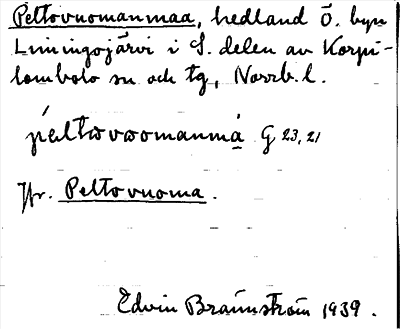 Peltovuomanmaa, hedland ö. byn
Liningojärvi i S. delen av Korpi-
lombolo sn och tg, Norrb. l.
péltovuomanmá̱ G 23, 21
Jfr. Peltovuoma.
Edvin Brännström 1939.